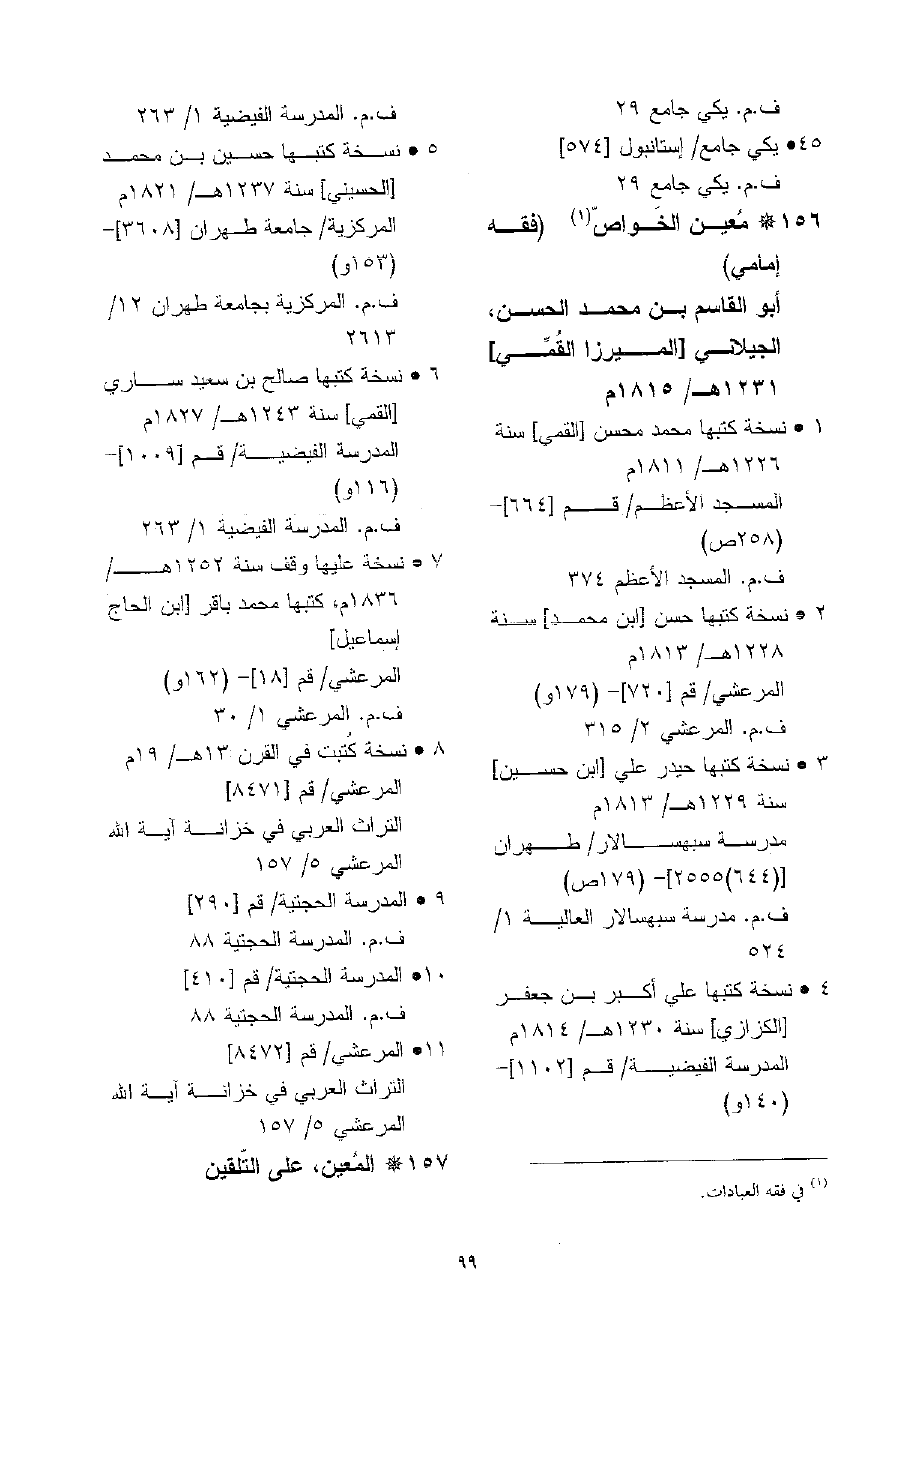 ف.م. يكي جامع ٢٩
٤٥• يكي جامع/ إستانبول [٥٧٤]
ف.م. يكي جامع ٢٩
١٥٦ * مُعين الخَواصّ(١) (فقه
إمامي)
أبو القاسم بن محمد الحسن،
الجيلاني [الميرزا القُمِّي]
١٢٣١هـ/ ١٨١٥م
١ • نسخة كتبها محمد محسن [القمي] سنة
١٢٢٦هـ/ ١٨١١م
المسجد الأعظم/ قم [٦٦٤]-
(٢٥٨ص)
ف.م. المسجد الأعظم ٣٧٤
٢ • نسخة كتبها حسن [ابن محمد] سنة
١٢٢٨هـ/ ١٨١٣م
المرعشي/ قم [٧٢٠]- (١٧٩و)
ف.م. المرعشي ٢/ ٣١٥
٣ • نسخة كتبها حيدر علي [ابن حسين]
سنة ١٢٢٩هـ/ ١٨١٣م
مدرسة سبهسالار/ طهران
[(٦٤٤)٢٥٥٥]- (١٧٩ص)
ف.م. مدرسة سبهسالار العالية ١/
٥٢٤
٤ • نسخة كتبها علي أكبر بن جعفر
[الكزازي] سنة ١٢٣٠هـ/ ١٨١٤م
المدرسة الفيضية/ قم [١١٠٢]-
(١٤٠و)
(١) في فقه العبادات.
ف.م. المدرسة الفيضية ١/ ٢٦٣
٥ • نسخة كتبها حسين بن محمد
[الحسيني] سنة ١٢٣٧هـ/ ١٨٢١م
المركزية/ جامعة طهران [٣٦٠٨]-
(١٥٣و)
ف.م. المركزية بجامعة طهران ١٢/
٢٦١٣
٦ • نسخة كتبها صالح بن سعيد ساري
[القمي] سنة ١٢٤٣هـ/ ١٨٢٧م
المدرسة الفيضية/ قم [١٠٠٩]-
(١١٦و)
ف.م. المدرسة الفيضية ١/ ٢٦٣
٧ • نسخة عليها وقف سنة ١٢٥٢هـ/
١٨٣٦م، كتبها محمد باقر [ابن الحاج
إسماعيل]
المرعشي/ قم [١٨]- (١٦٢و)
ف.م. المرعشي ١/ ٣٠
٨ • نسخة كُتبت في القرن ١٣هـ/ ١٩م
المرعشي/ قم [٨٤٧١]
التراث العربي في خزانة آية الله
المرعشي ٥/ ١٥٧
٩ • المدرسة الحجتية/ قم [٢٩٠]
ف.م. المدرسة الحجتية ٨٨
١٠• المدرسة الحجتية/ قم [٤١٠]
ف.م. المدرسة الحجتية ٨٨
١١• المرعشي/ قم [٨٤٧٢]
التراث العربي في خزانة آية الله
المرعشي ٥/ ١٥٧
١٥٧ * المُعين، على التّلقين
٩٩